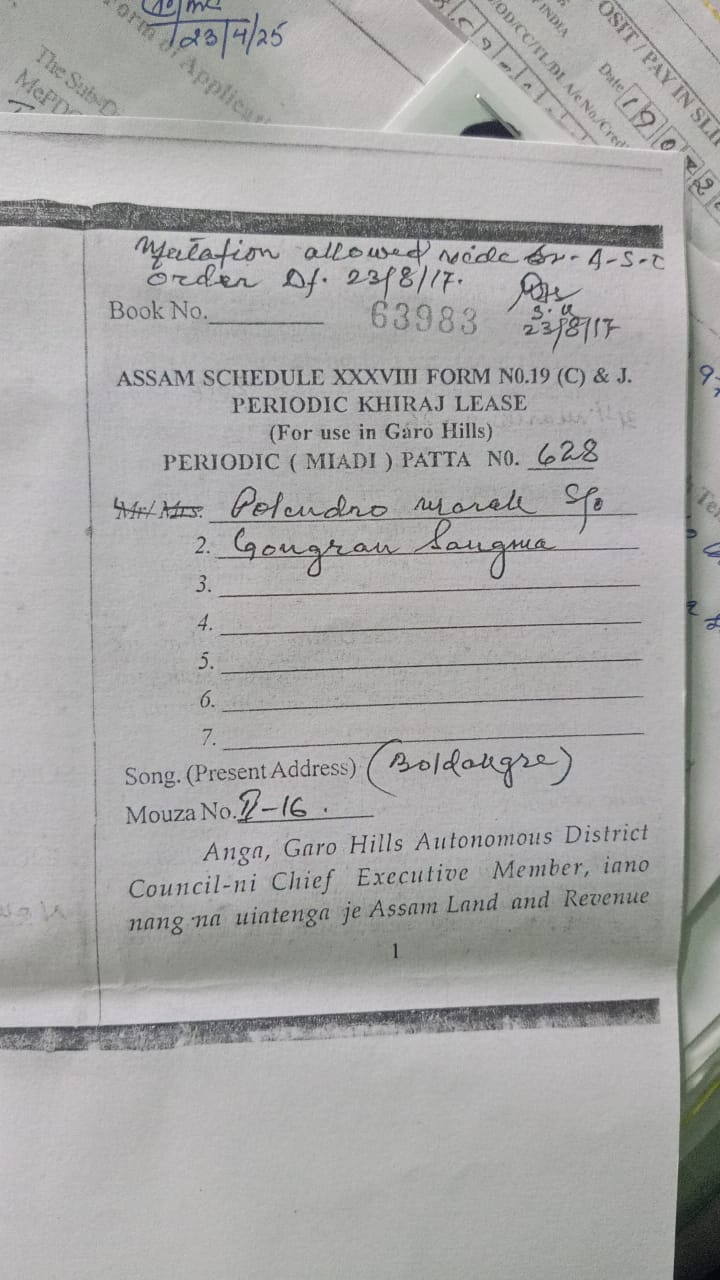 23/4/25
Form of Applicat
The Sub-D
MePD
INDIA
OD/CC/TL/DL A/c No./Cred
OSIT / PAY IN SLI
Date
Mutation allowed vide Sr. A-S-O
order Df. 23/8/17.
Book No. 63983
S.K
23/8/17
ASSAM SCHEDULE XXXVIII FORM N0.19 (C) & J.
PERIODIC KHIRAJ LEASE
(For use in Garo Hills)
PERIODIC ( MIADI ) PATTA N0. 628
Mr/ Mrs. Polendro marak S/o
2. Gongran Sangma
3.
4.
5.
6.
7.
Song. (Present Address) (Boldakgre)
Mouza No. II-16.
Anga, Garo Hills Autonomous District
Council-ni Chief Executive Member, iano
nang·na uiatenga je Assam Land and Revenue
1